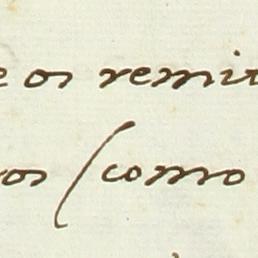 e os remit
os (como